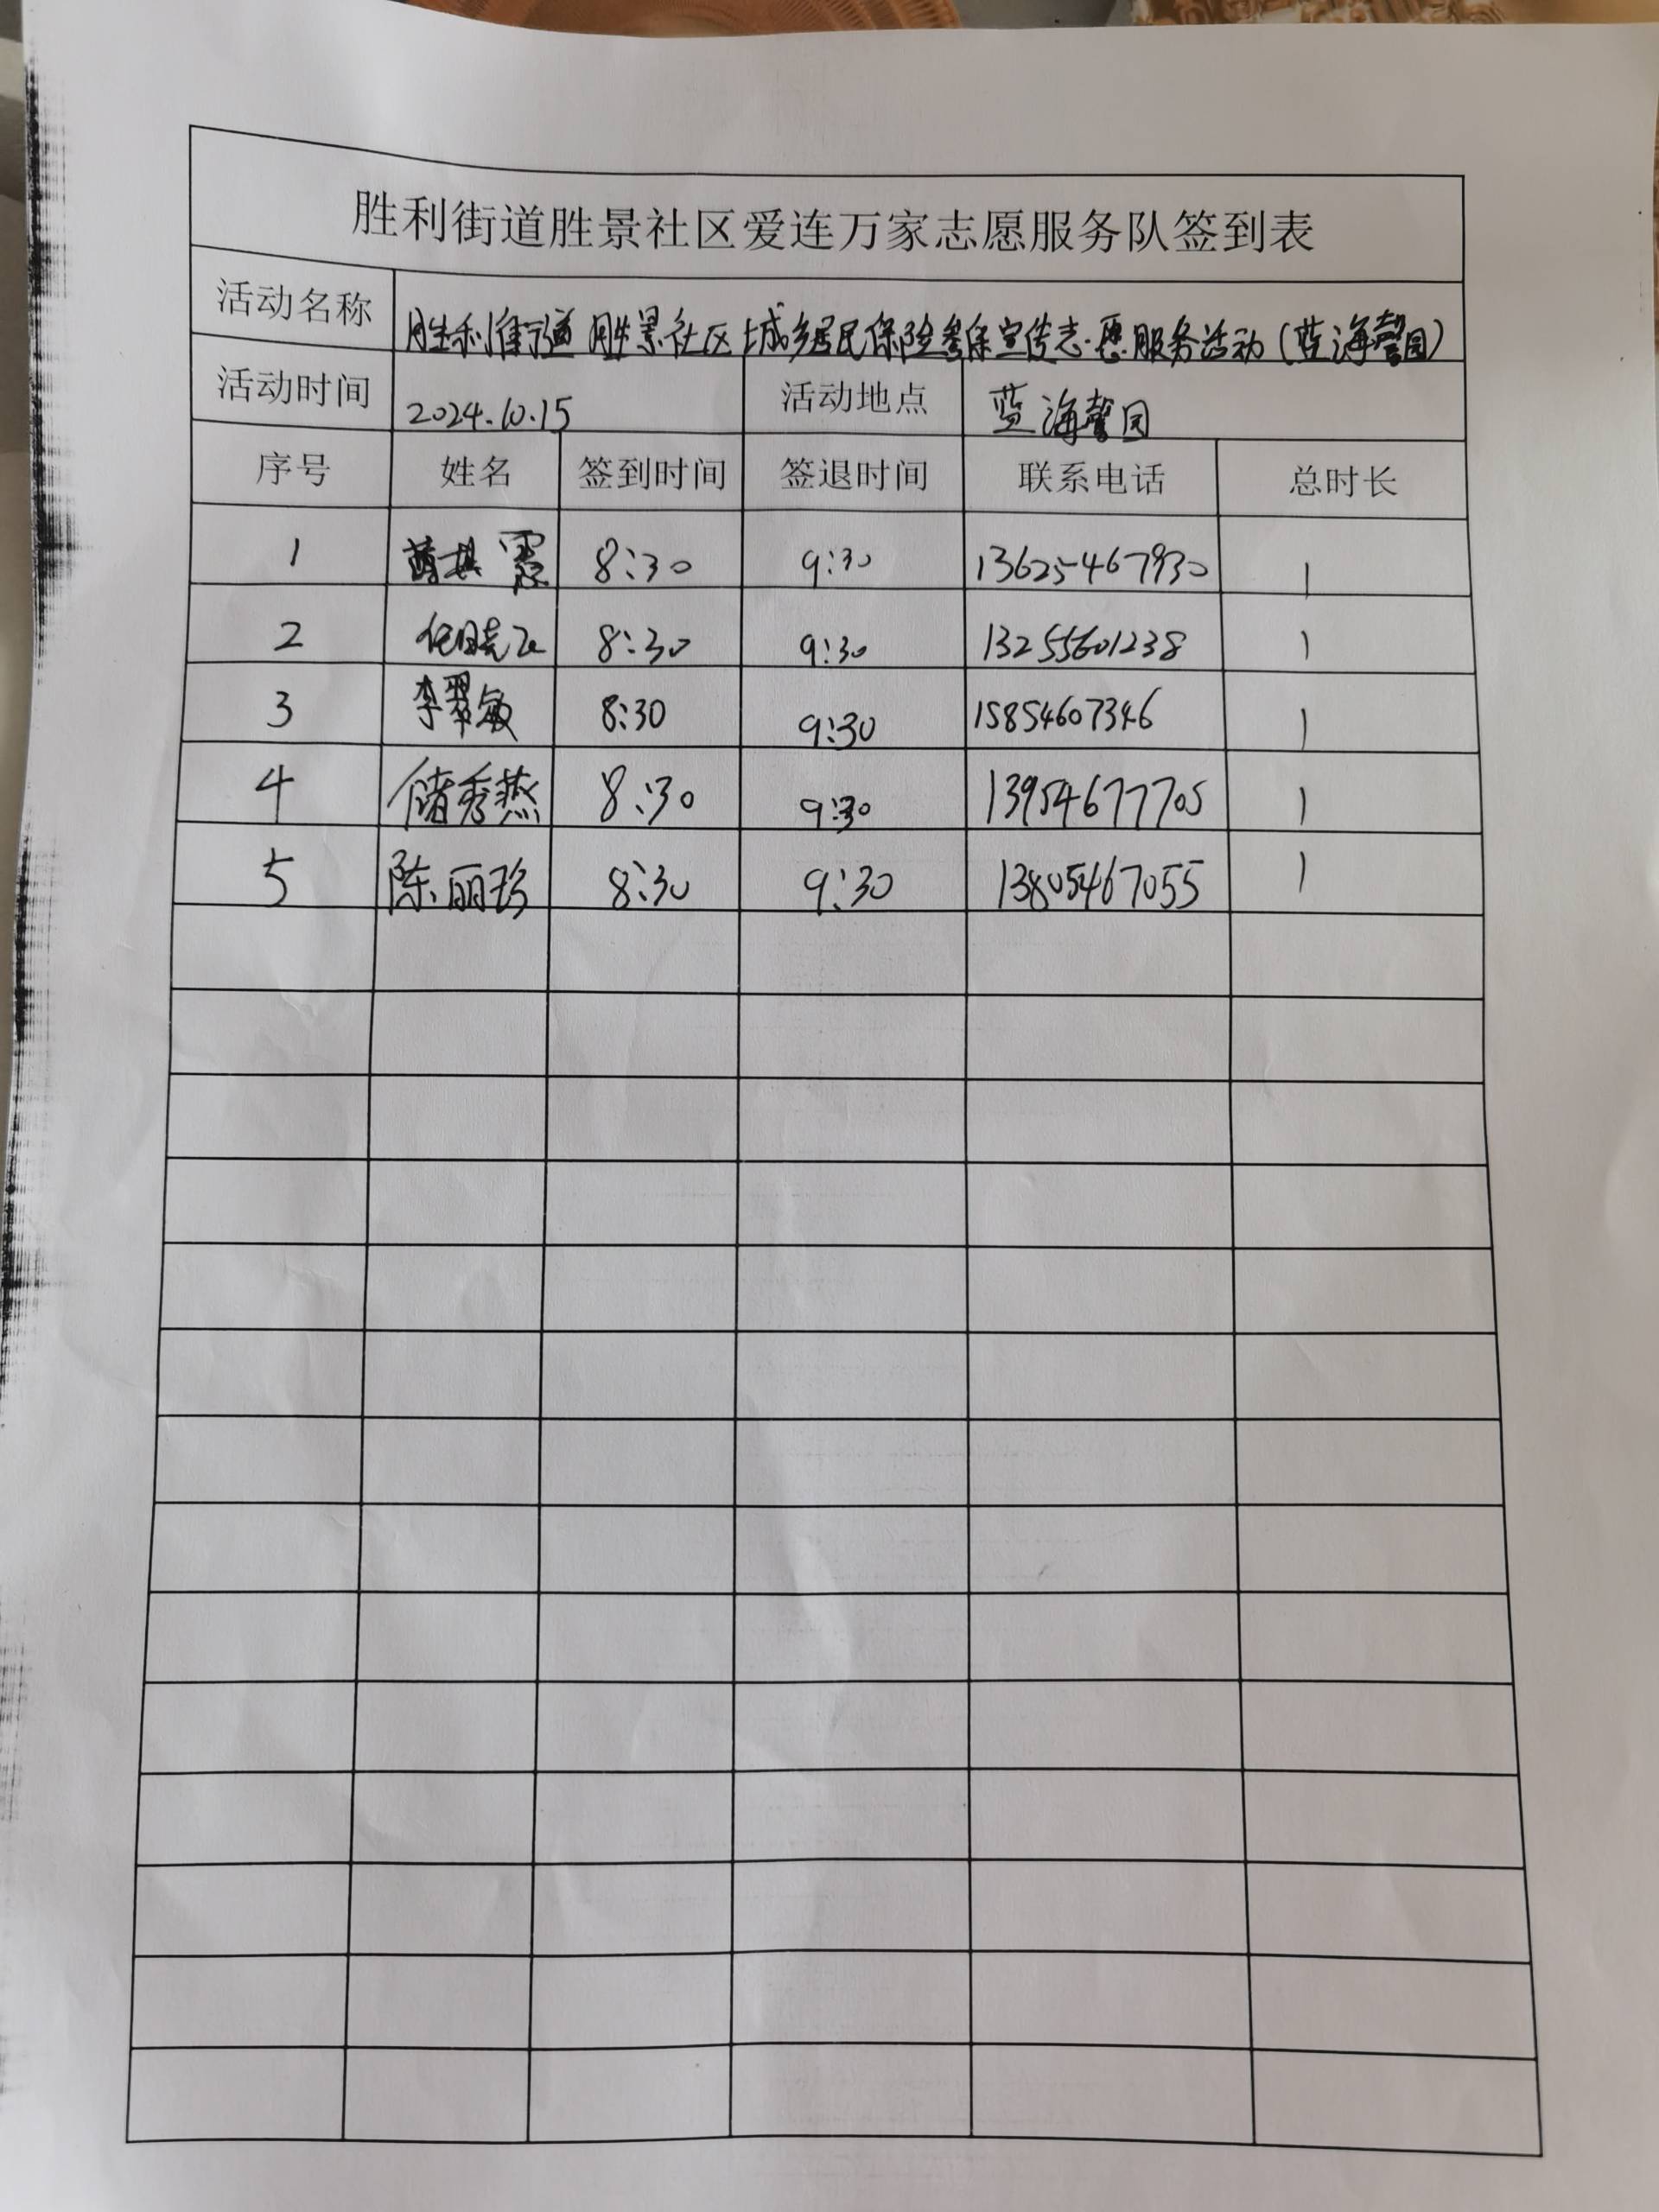 胜利街道胜景社区爱连万家志愿服务队签到表
活动名称 胜利街道胜景社区城乡居民保险参保宣传志愿服务活动(蓝海馨园)
活动时间 2024.10.15 活动地点 蓝海馨园
序号 姓名 签到时间 签退时间 联系电话 总时长
1 8:30 9:30 13625467930 1
2 任晓飞 8:30 9:30 13255601238 1
3 李翠敏 8:30 9:30 15854607346 1
4 储秀燕 8:30 9:30 13954677705 1
5 陈丽珍 8:30 9:30 13805467055 1